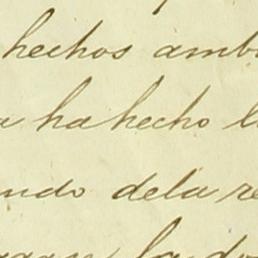 hechos amb
ha hecho l
ndo dela re
la do